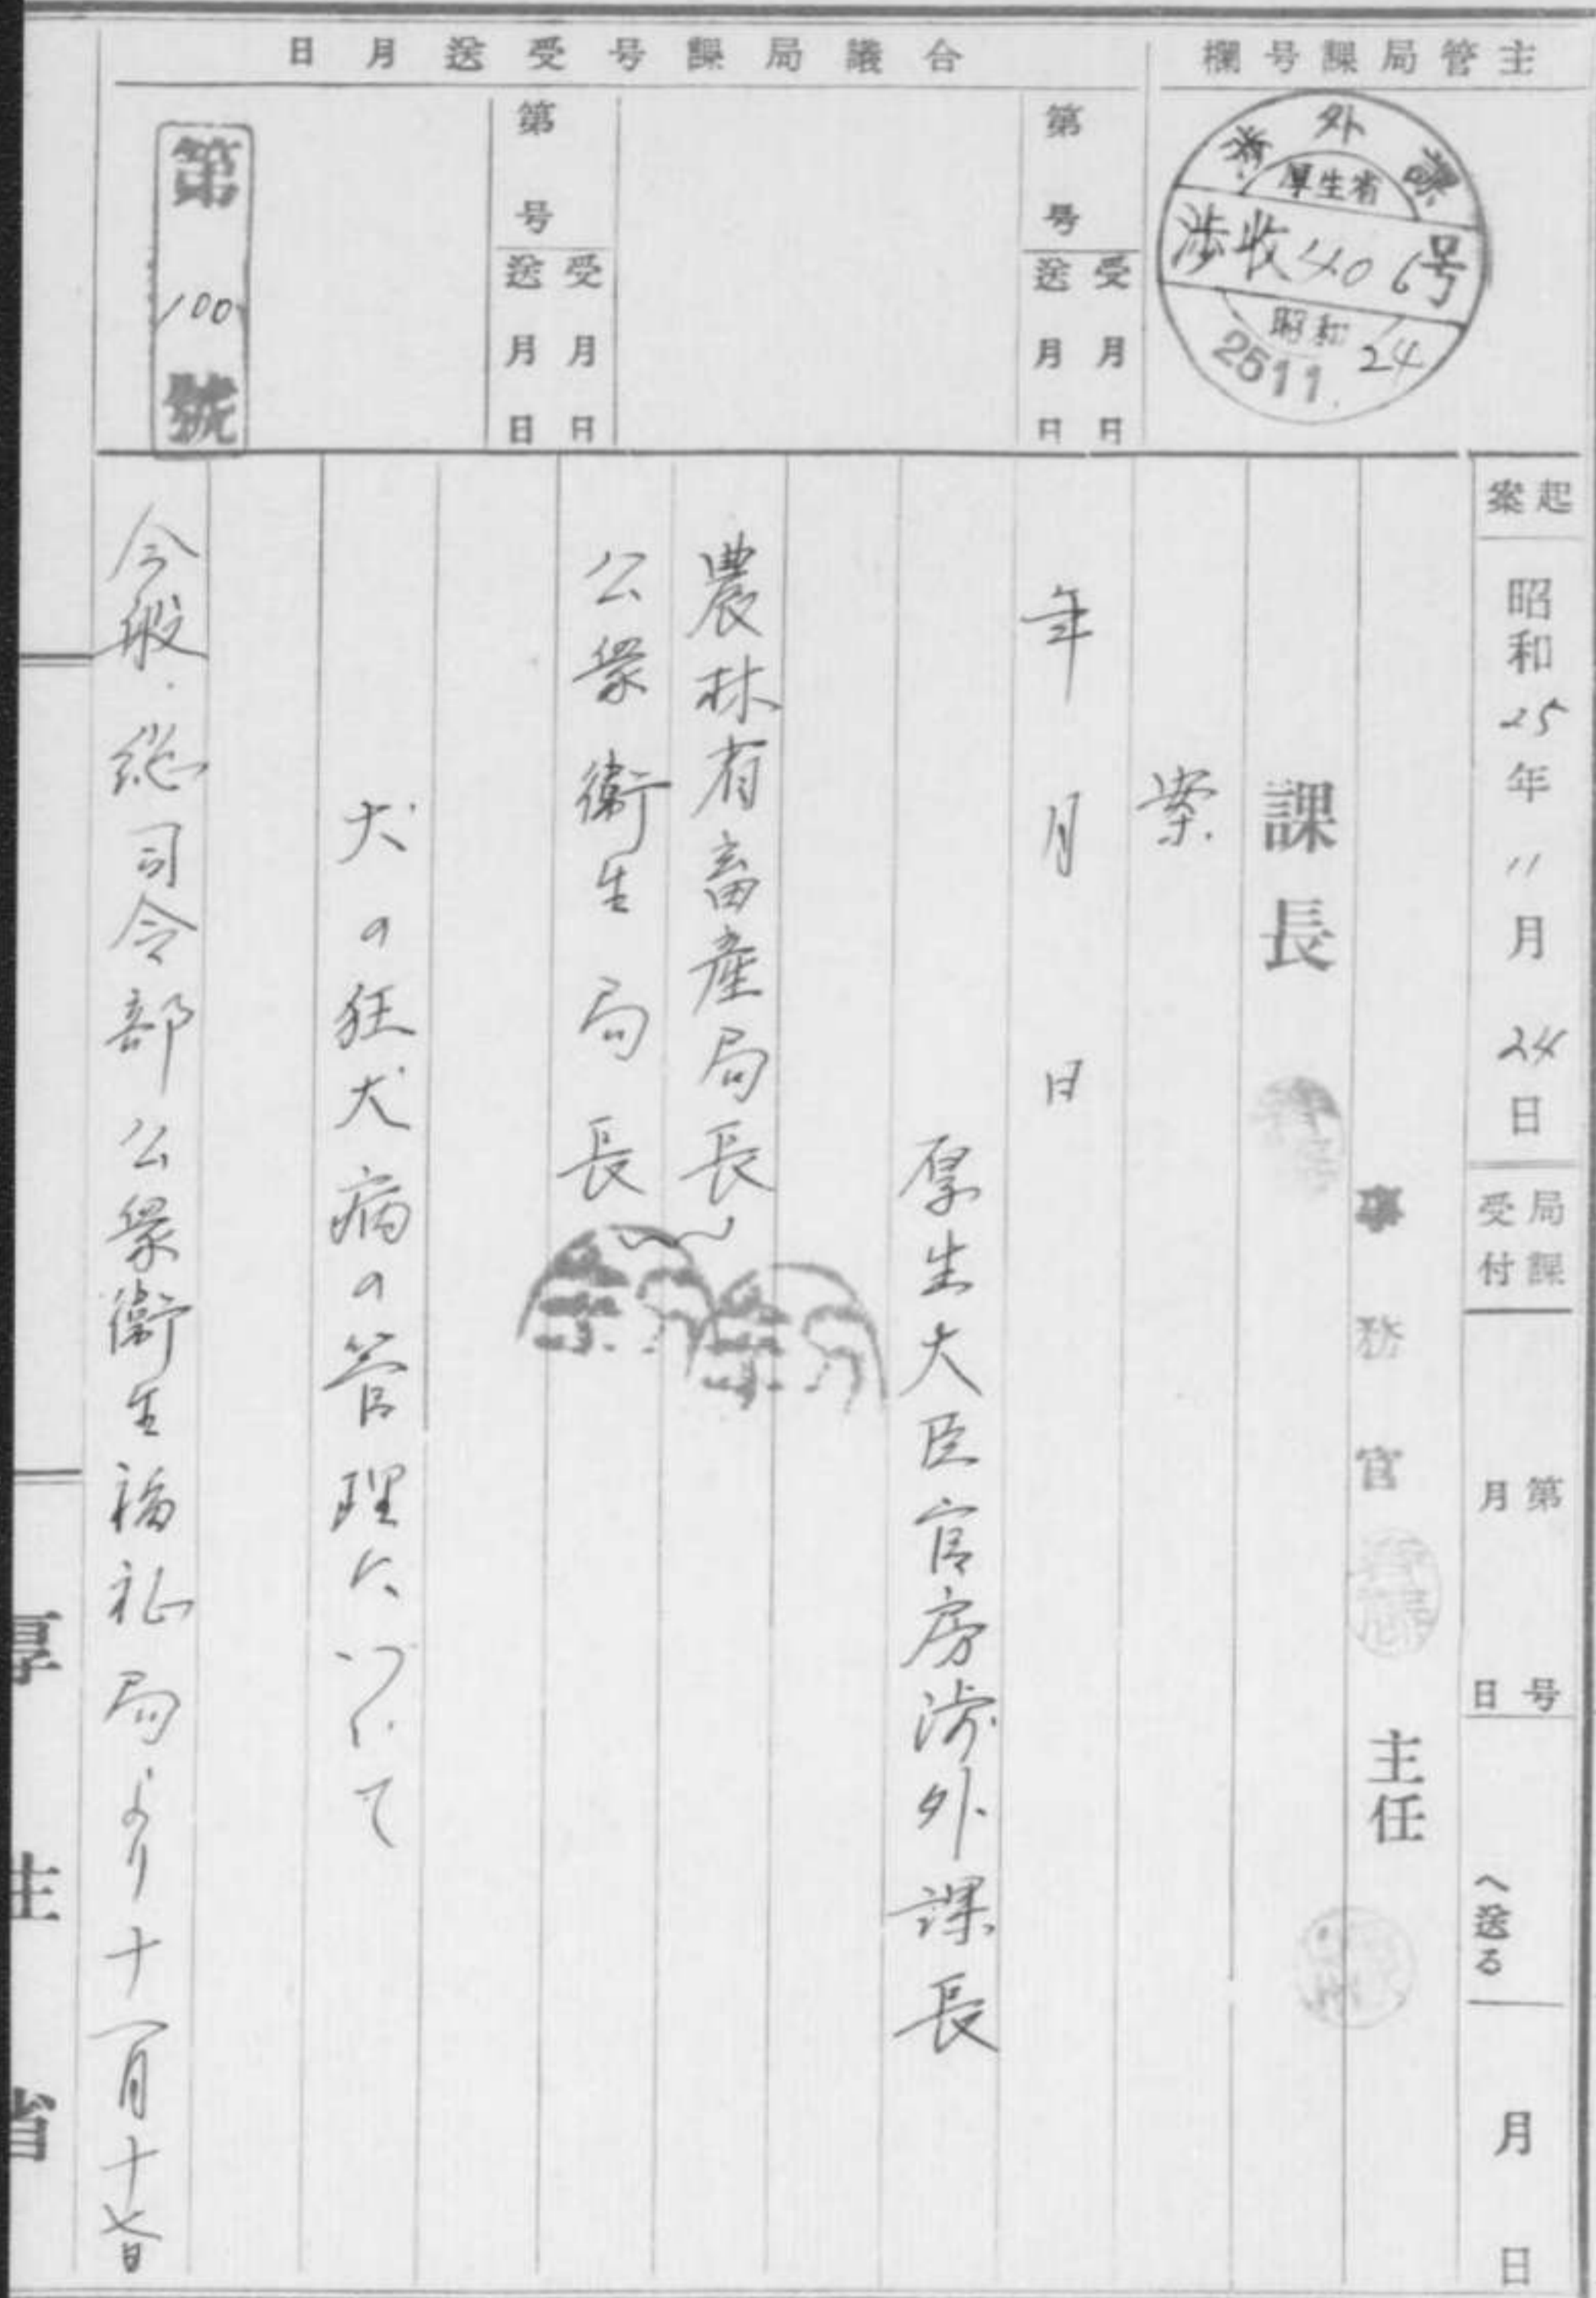 主管局課号欄
合議局課号受送月日
渉外課
厚生省
渉收406号
昭和
25 11. 24
第 号
受 月 日
送 月 日
第 号
受 月 日
送 月 日
第100號
起案 昭和25年11月24日
局課受付
第 号
月 日
へ送る
月 日
事務官 主任
課長
案
年 月 日
厚生大臣官房渉外課長
農林省畜産局長
公衆衛生局長
犬の狂犬病の管理について
今般、総司令部公衆衛生福祉局より十一月十七日
厚生省